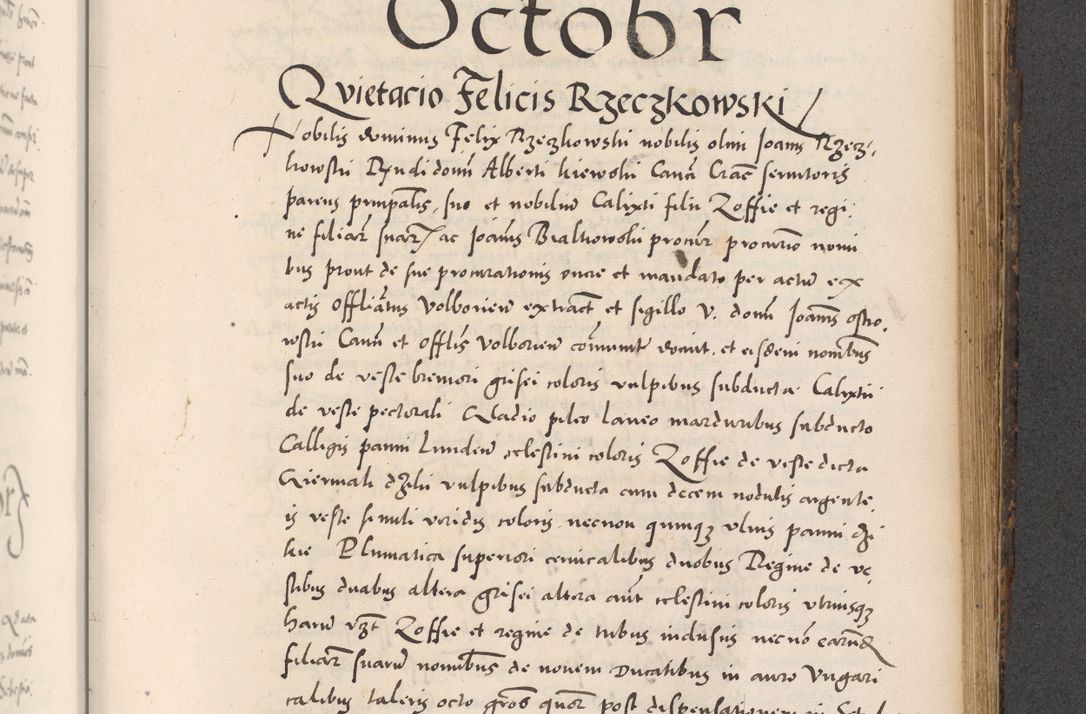 Octobr
Qvietacio Felicis Rzeczkowski
Nobilis dominus Felix Rzeczkowski nobilis olim Joanis Rzecz,
kowski Rxndi domi Alberti kiewski Canci Crac servitoris
parens prinpalis, suo et nobiliu Calixti filii Zoffie et regi,
ne filiar suar ac Joanis Bialkowski procur procurio nomi
bus prout de sue procurationis onere et mandato per actu ex
actis Offliatus Volborien extract et sigillo v. domi Joanis ostro,
wski Canci et Offlis Volborien comunit docuit. et eisdem nombus
suo de veste bremori grisei coloris vulpibus subducta Calixti
de veste pectorali Gladio pileo laneo marduribus subducto
Calligis panni Lunden celestini coloris Zoffie de veste dicta
Giermak dzikii vulpibus subducta cum decem nodulis argente,
is veste simili viridis coloris necnon quinqz ulnis panni
kie Plumatica superiori cervicalibus duobus Regine de ve,
stibus duabus altera grisei altera aut celestini coloris utriusqz
haru vzt Zoffie et regine de tribus indusiis necno earund
filiar suaru nominibus de novem Ducatibus in auro Vngari
calibus taleris octo gros quor post dispensationem in